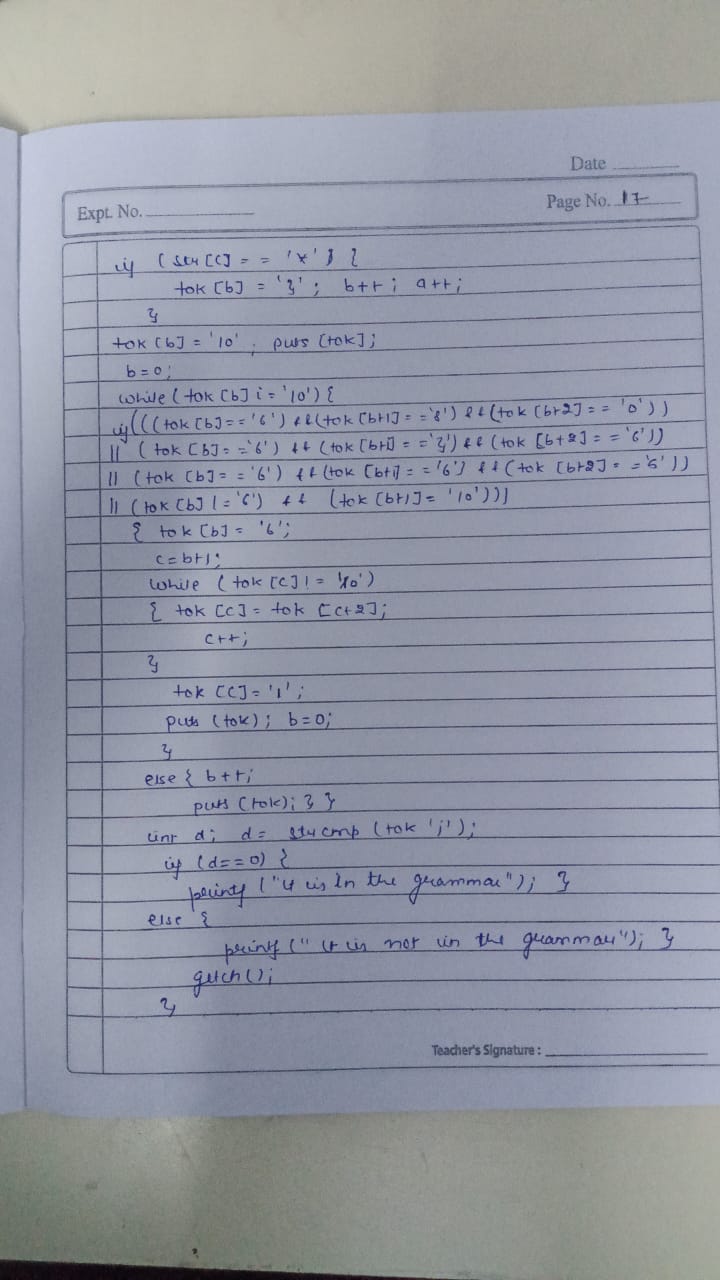 Date
Expt. No.
Page No. 17
if (str [c] = = '*') {
tok [b] = '3'; b++; a++;
}
tok [b] = '10'; puts [tok];
b=0;
while (tok [b] i = '10') {
if (((tok [b] = = '6') && (tok [b+1] = = '8') && (tok [b+2] = = '0'))
|| (tok [b] = = '6') && (tok [b+1] = = '3') && (tok [b+2] = = '6'))
|| (tok [b] = = '6') && (tok [b+1] = = '6') && (tok [b+2] = = '5'))
|| (tok [b] ! = '6') && (tok [b+1] = '10')))
{ tok [b] = '6';
c=b+1;
while (tok [c] ! = '10')
{ tok [c] = tok [c+2];
c++;
}
tok [c] = '1';
puts (tok); b=0;
}
else { b++;
puts (tok); } }
int d; d= strcmp (tok 'j');
if (d==0) {
printf ("it is in the grammar"); }
else {
printf (" it is not in the grammar"); }
getch();
}
Teacher's Signature :